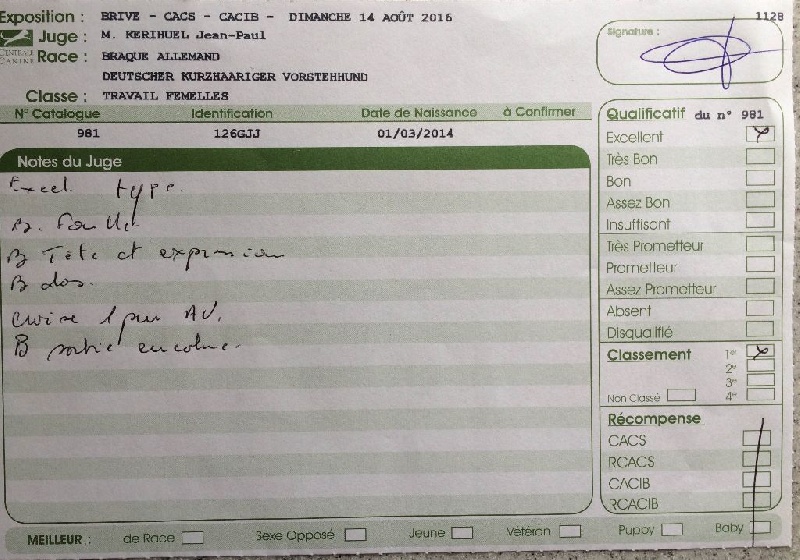 Exposition : BRIVE - CACS - CACIB - DIMANCHE 14 AOÛT 2016
1128
Juge : M. KERIHUEL Jean-Paul
Signature :
CENTRALE CANINE
Race : BRAQUE ALLEMAND
DEUTSCHER KURZHAARIGER VORSTEHHUND
Classe : TRAVAIL FEMELLES
N° Catalogue Identification Date de Naissance à Confirmer
981 126GJJ 01/03/2014
Notes du Juge
Excel type
B. Fouet
B Tête et expression
B dos.
croise 1 peu AV.
B sortie encolure.
Qualificatif du n° 981
Excellent X
Très Bon
Bon
Assez Bon
Insuffisant
Très Prometteur
Prometteur
Assez Prometteur
Absent
Disqualifié
Classement 1er X
2e
3e
Non Classé 4e
Récompense
CACS
RCACS
CACIB
RCACIB
MEILLEUR : de Race Sexe Opposé Jeune Vétéran Puppy Baby